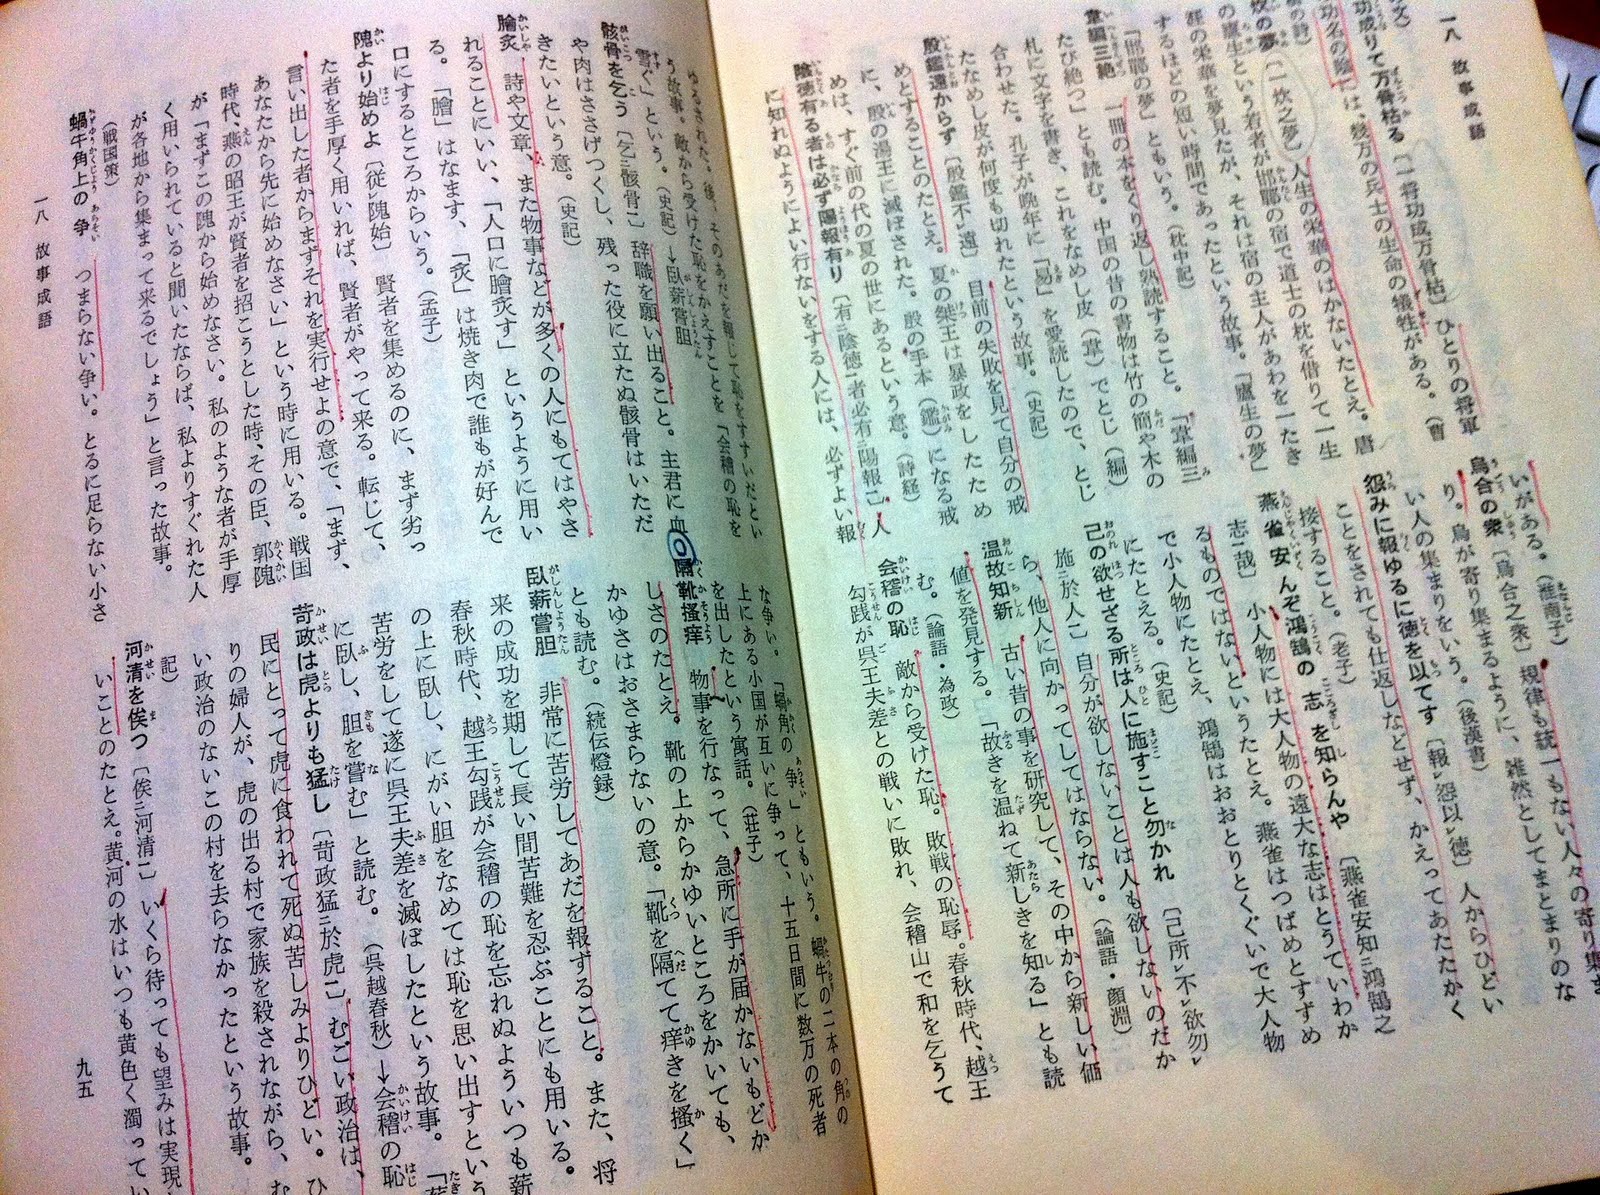 一八 故事成語
功成りて万骨枯る〔一将功成万骨枯〕 ひとりの将軍
功名の陰には、幾万の兵士の生命の犠牲がある。（曹
炊の夢〔一炊之夢〕 人生の栄華のはかないたとえ。唐
の盧生という若者が邯鄲の宿で道士の枕を借りて一生
の栄華を夢見たが、それは宿の主人があわを一たき
するほどの短い時間であったという故事。「盧生の夢」
「邯鄲の夢」ともいう。（枕中記）
韋編三絶 一冊の本をくり返し熟読すること。「韋編三
たび絶つ」とも読む。中国の昔の書物は竹の簡や木の
札に文字を書き、これをなめし皮（韋）でとじ（編）
合わせた。孔子が晩年に「易」を愛読したので、とじ
たなめし皮が何度も切れたという故事。（史記）
殷鑑遠からず〔殷鑑不レ遠〕 目前の失敗を見て自分の戒
めとすることのたとえ。夏の桀王は暴政をしたため
に、殷の湯王に滅ぼされた。殷の手本（鑑）になる戒
めは、すぐ前の代の夏の世にあるという意。（詩経）
陰徳有る者は必ず陽報有り〔有二陰徳一者必有二陽報一〕 人
に知れぬようによい行ないをする人には、必ずよい報
いがある。（淮南子）
烏合の衆〔烏合之衆〕 規律も統一もない人々の寄り集ま
り。烏が寄り集まるように、雑然としてまとまりのな
い人の集まりをいう。（後漢書）
怨みに報ゆるに徳を以てす〔報レ怨以レ徳〕 人からひどい
ことをされても仕返しなどせず、かえってあたたかく
接すること。（老子）
燕雀安んぞ鴻鵠の志を知らんや〔燕雀安知二鴻鵠之
志一哉〕 小人物には大人物の遠大な志はとうていわか
るものではないというたとえ。燕雀はつばめとすずめ
で小人物にたとえ、鴻鵠はおおとりとくぐいで大人物
にたとえる。（史記）
己の欲せざる所は人に施すこと勿かれ〔己所レ不レ欲勿レ
施二於人一〕 自分が欲しないことは人も欲しないのだか
ら、他人に向かってしてはならない。（論語・顔淵）
温故知新 古い昔の事を研究して、その中から新しい価
値を発見する。「故きを温ねて新しきを知る」とも読
む。（論語・為政）
会稽の恥 敵から受けた恥。敗戦の恥辱。春秋時代、越王
勾践が呉王夫差との戦いに敗れ、会稽山で和を乞うて
ゆるされた。後、そのあだを報して恥をすすいだとい
う故事。敵から受けた恥をかえすことを「会稽の恥を
雪ぐ」という。（史記）→臥薪嘗胆
骸骨を乞う〔乞二骸骨一〕 辞職を願い出ること。主君に血
や肉はささげつくし、残った役に立たぬ骸骨はいただ
きたいという意。（史記）
膾炙 詩や文章、また物事などが多くの人にもてはやさ
れることにいい、「人口に膾炙す」というように用い
る。「膾」はなます、「炙」は焼き肉で誰もが好んで
口にするところからいう。（孟子）
隗より始めよ〔従レ隗始〕 賢者を集めるのに、まず劣っ
た者を手厚く用いれば、賢者がやって来る。転じて、
言い出した者からまずそれを実行せよの意で、「まず、
あなたから先に始めなさい」という時に用いる。戦国
時代、燕の昭王が賢者を招こうとした時、その臣、郭隗
が「まずこの隗から始めなさい。私のような者が手厚
く用いられていると聞いたならば、私よりすぐれた人
が各地から集まって来るでしょう」と言った故事。
（戦国策）
蝸牛角上の争 つまらない争い。とるに足らない小さ
な争い。「蝸角の争」ともいう。蝸牛の二本の角の
上にある小国が互いに争って、十五日間に数万の死者
を出したという寓話。（荘子）
隔靴掻痒 物事を行なって、急所に手が届かないもどか
しさのたとえ。靴の上からかゆいところをかいても、
かゆさはおさまらないの意。「靴を隔てて痒きを掻く」
とも読む。（続伝燈録）
臥薪嘗胆 非常に苦労してあだを報ずること。また、将
来の成功を期して長い間苦難を忍ぶことにも用いる。
春秋時代、越王勾践が会稽の恥を忘れぬよういつも薪
の上に臥し、にがい胆をなめては恥を思い出すという
苦労をして遂に呉王夫差を滅ぼしたという故事。「薪
に臥し、胆を嘗む」と読む。（呉越春秋）→会稽の恥
苛政は虎よりも猛し〔苛政猛二於虎一〕 むごい政治は、
民にとって虎に食われて死ぬ苦しみよりひどい。ひ
りの婦人が、虎の出る村で家族を殺されながら、む
い政治のないこの村を去らなかったという故事。
記）
河清を俟つ〔俟二河清一〕 いくら待っても望みは実現
いことのたとえ。黄河の水はいつも黄色く濁ってい
一八 故事成語
九五